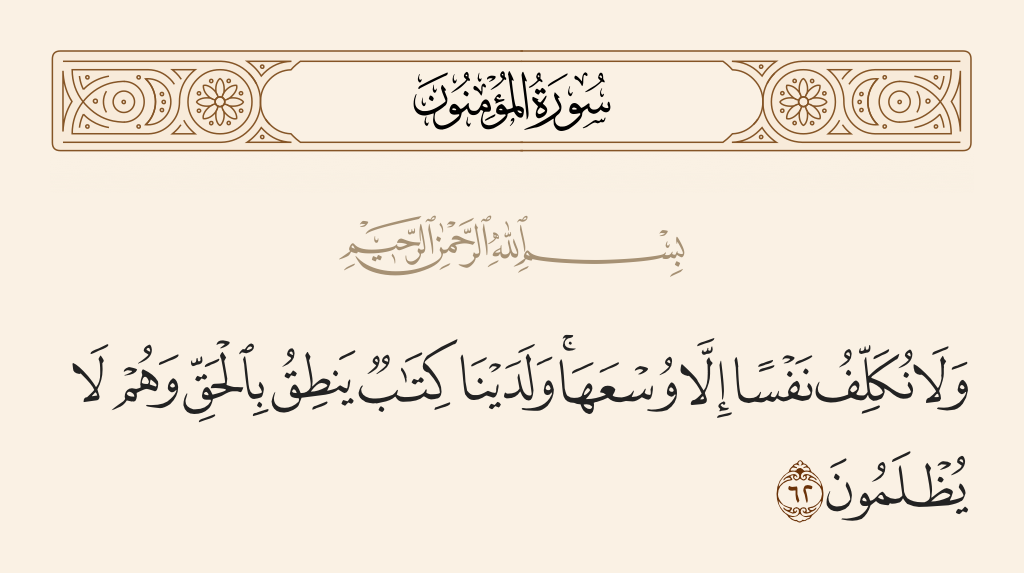 سُورَةُ المُؤْمِنُونَ
بِسْمِ ٱللَّهِ ٱلرَّحْمَٰنِ ٱلرَّحِيمِ
وَلَا نُكَلِّفُ نَفْسًا إِلَّا وُسْعَهَا ۚ وَلَدَيْنَا كِتَـٰبٌ يَنطِقُ بِٱلْحَقِّ وَهُمْ لَا
يُظْلَمُونَ ٦٢